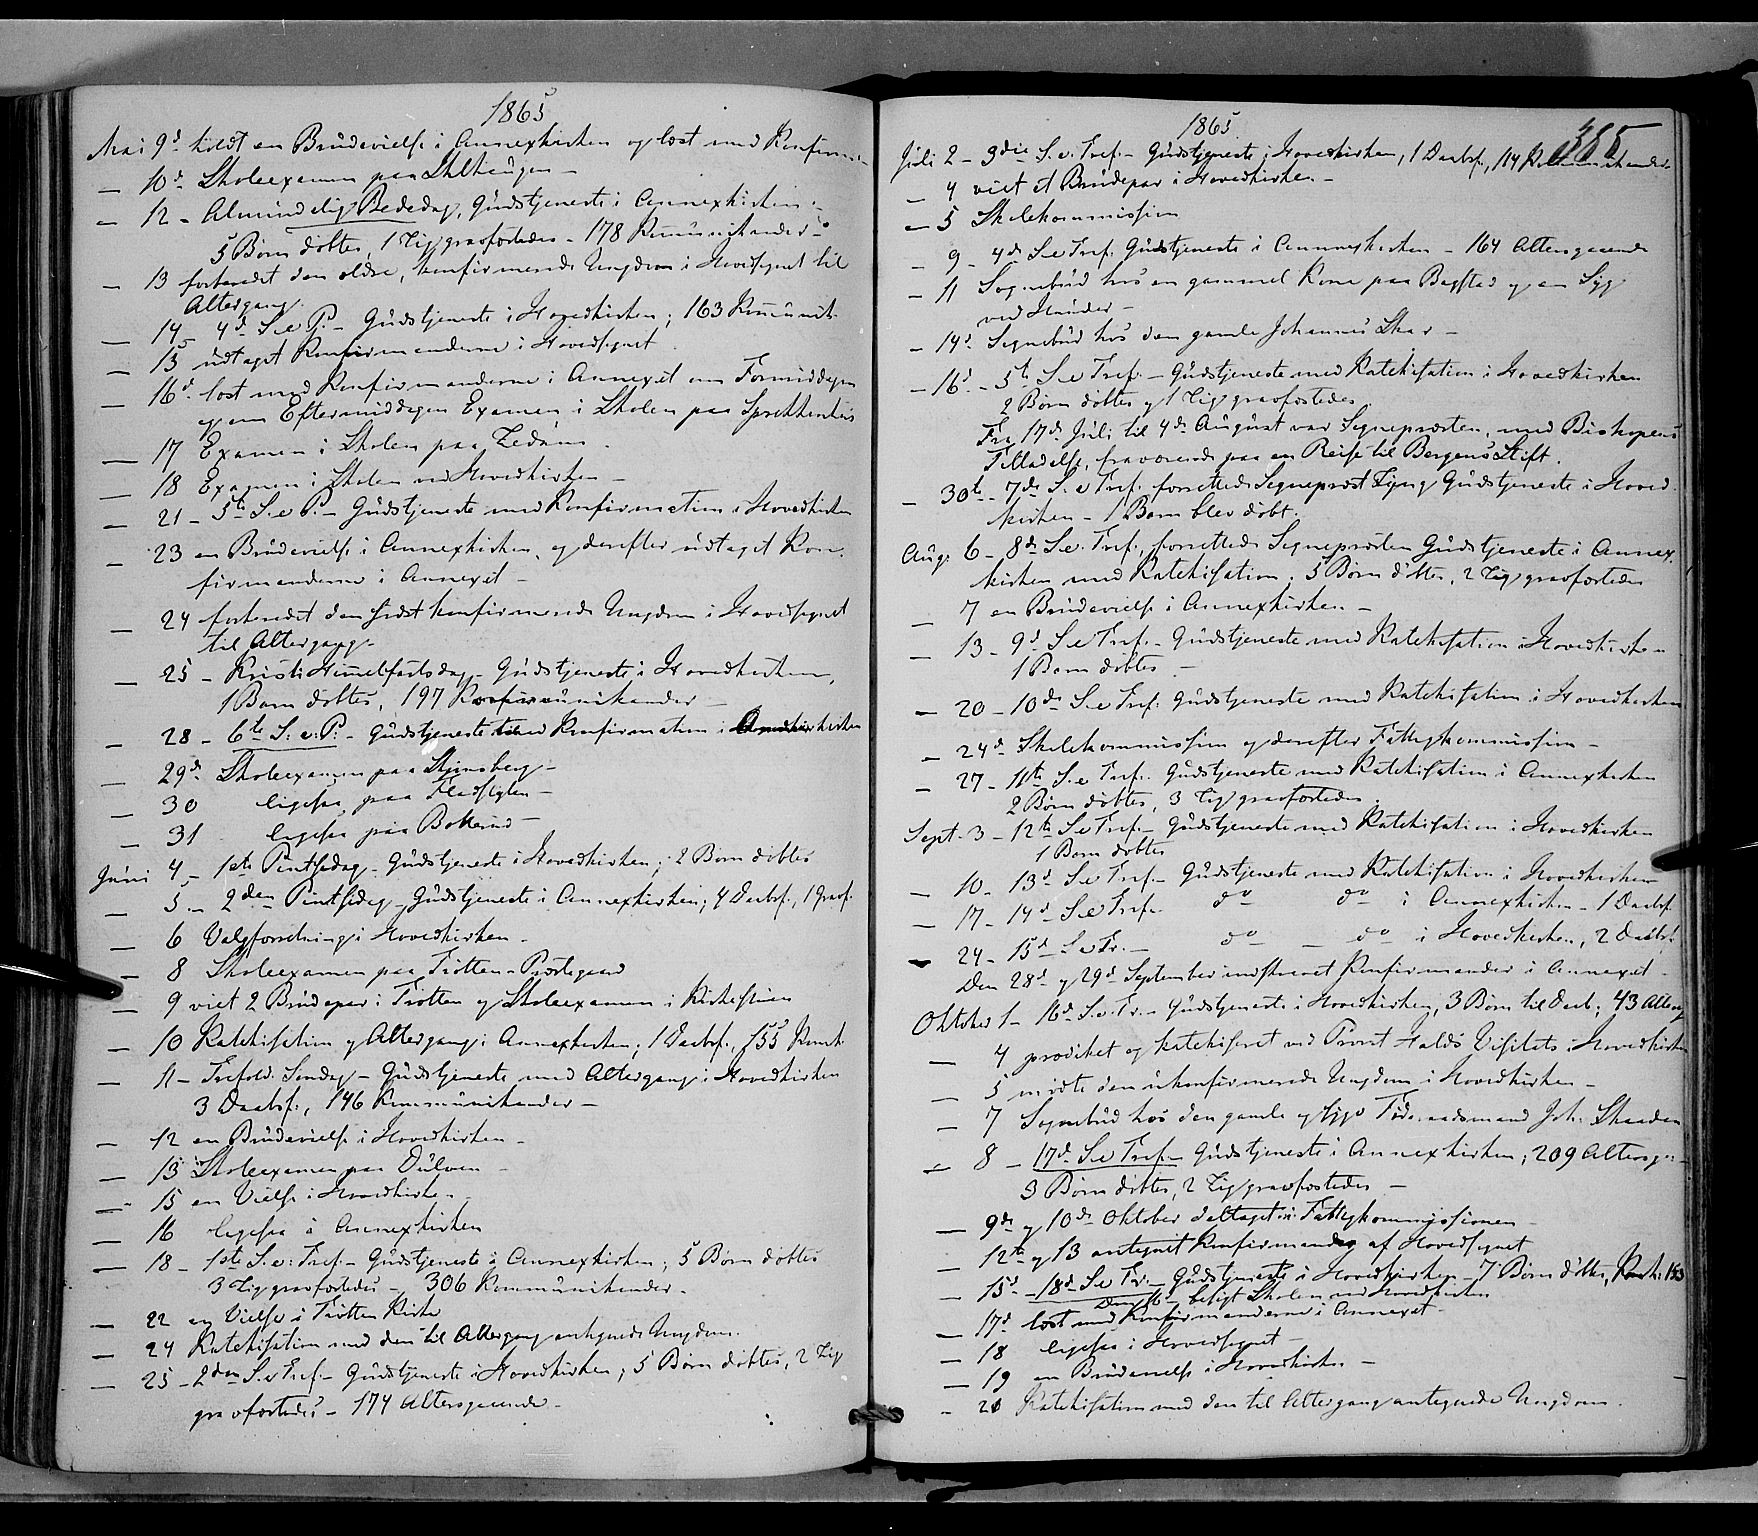 1865
Mai 9d holdt en Brudevielse i Annexkirken og læst med Konfirm.
— 10d Skoleexamen paa
— 12 - Almindelig Bededag, Gudstjeneste i Annexkirken.
5 Børn døbtes, 1 Lig gravfæstedes - 178 Kommunikander -
— 13 forberedt den ældre, konfirmerede Ungdom i Hovedsognet til
Altergang.
— 14 - 4d S. e. P. - Gudstjeneste i Hovedkirken; 163 Kommunik.
— 15 udtaget Konfirmanderne i Hovedsognet.
— 16d læst med Konfirmanderne i Annexet om Formiddagen
og om Eftermiddagen Examen i Skolen paa
— 17 Examen i Skolen paa
— 18 Examen i Skolen ved Hovedkirken -
— 21 - 5te S. e. P. - Gudstjeneste med Konfirmation i Hovedkirken
— 23 en Brudevielse i Annexkirken, og derefter udtaget Kon-
firmanderne i Annexet -
— 24 forberedt den sidst konfirmerede Ungdom i Hovedsognet
til Altergang.
— 25 - Kristi Himmelfartsdag - Gudstjeneste i Hovedkirken,
1 Barn døbtes, 197 Kommunikander -
— 28 - 6te S. e. P. - Gudstjeneste med Konfirmation i Annexkirken
— 29d Skoleexamen paa
— 30 ligesaa paa
— 31 ligesaa paa
Juni 4 - 1ste Pintsedag - Gudstjeneste i Hovedkirken; 2 Børn døbtes
— 5 - 2den Pintsedag - Gudstjeneste i Annexkirken; 4 Daabsf., 1 Gravf.
— 6 Valgforretning i Hovedkirken -
— 8 Skoleexamen paa Trøtten - Præstegaard
— 9 viet 2 Brudepar i Trøtten og Skoleexamen i Kirkestuen
— 10 Katekisation og Altergang i Annexkirken; 1 Daabsf., 155 Komk.
— 11 - Trefold. Søndag - Gudstjeneste med Altergang i Hovedkirken
3 Daabsf., 146 Kommunikander -
— 12 en Brudevielse i Hovedkirken -
— 13 Skoleexamen paa
— 15 en Vielse i Hovedkirken -
— 16 ligesaa i Annexkirken
— 18 - 1ste S. e. Tref. - Gudstjeneste i Annexkirken; 5 Børn døbtes
3 Lig gravfæstedes - 306 Kommunikander -
— 22 en Vielse i Trøtten Kirke
— 24 Katekisation med den til Altergang antegnede Ungdom.
— 25 - 2den S. e. Tref. - Gudstjeneste i Hovedkirken; 5 Børn døbtes, 2 Lig
gravfæstedes - 174 Altersgaaende -
1865.
385
Juli 2 - 3die S. e. Tref. - Gudstjeneste i Hovedkirken, 1 Daabsf., 114 Kommunikander
— 4 viet et Brudepar i Hovedkirken -
— 5 Skolekommission
— 9 - 4d S. e. Tref. Gudstjeneste i Annexkirken - 164 Altersgaaende
— 11 Sognebud hos en gammel Kone paa og en Syg
ved
— 14d Sognebud hos den gamle Johannes Skar -
— 16d - 5te S. e. Tref. - Gudstjeneste med Katekisation i Hovedkirken
2 Børn døbtes og 1 Lig gravfæstedes.
Fra 17d Juli til 4d August var Sognepræsten, med Biskopens
Tilladelse, fraværende paa en Reise til Bergens Stift.
— 30te - 7de S. e. Tref. forrettede Sognepræst Gudstjeneste i Hoved-
kirken - 1 Barn blev døbt.
Aug: 6 - 8d S. e. Tref., forrettede Sognepræsten Gudstjeneste i Annex-
kirken med Katekisation; 5 Børn døbtes, 2 Lig gravfæstedes
— 7 en Brudevielse i Annexkirken -
— 13 - 9d S. e Tref. - Gudstjeneste med Katekisation i Hovedkirken
1 Barn døbtes -
— 20 - 10de S. e Tref: Gudstjeneste med Katekisation i Hovedkirken
— 24d Skolekommission og derefter Fattigkommission -
— 27 - 11te S. e Tref. Gudstjeneste med Katekisation i Annexkirken
2 Børn døbtes, 3 Lig gravfæstedes.
Sept. 3 - 12te S. e Tref. - Gudstjeneste med Katekisation i Hovedkirken
1 Barn døbtes
— 10 - 13d S. e Tref. - Gudstjeneste med Katekisation i Hovedkirken
— 17 - 14d S. e Tref. do do i Annexkirken - 1 Daabsf.
— 24 - 15d S. e Tr. - do - do i Hovedkirken, 2 Daabsf.
Den 28d og 29d September indskrevet Konfirmander i Annexet -
Oktober 1 - 16d S. e. Tr. - Gudstjeneste i Hovedkirken, 3 Børn til Daab; 43 Alterg.
— 4 prædiket og katekiseret ved Provst Halds Visitats i Hovedkirken
— 5 mødte den ukonfirmerede Ungdom i Hovedkirken -
— 7 Sognebud hos den gamle og syge Føderaadsmand Joh. Skaaden
— 8 - 17d S. e Tref. - Gudstjeneste i Annexkirken; 209 Altersg. -
3 Børn døbtes, 2 Lig gravfæstedes -
— 9de og 10de Oktober deltaget i Fattigkommissionen -
— 12te og 13 antegnet Konfirmander af Hovedsognet
— 15d - 18d S. e Tr. - Gudstjeneste i Hovedkirken - 7 Børn døbtes, Komk. 153
Den 16d besøgt Skolen ved Hovedkirken
— 17d læst med Konfirmanderne i Annexet -
— 18 ligesaa i Hovedsognet -
— 19 en Brudevielse i Hovedkirken -
— 20 Katekisation med den til Altergang antegnede Ungdom.